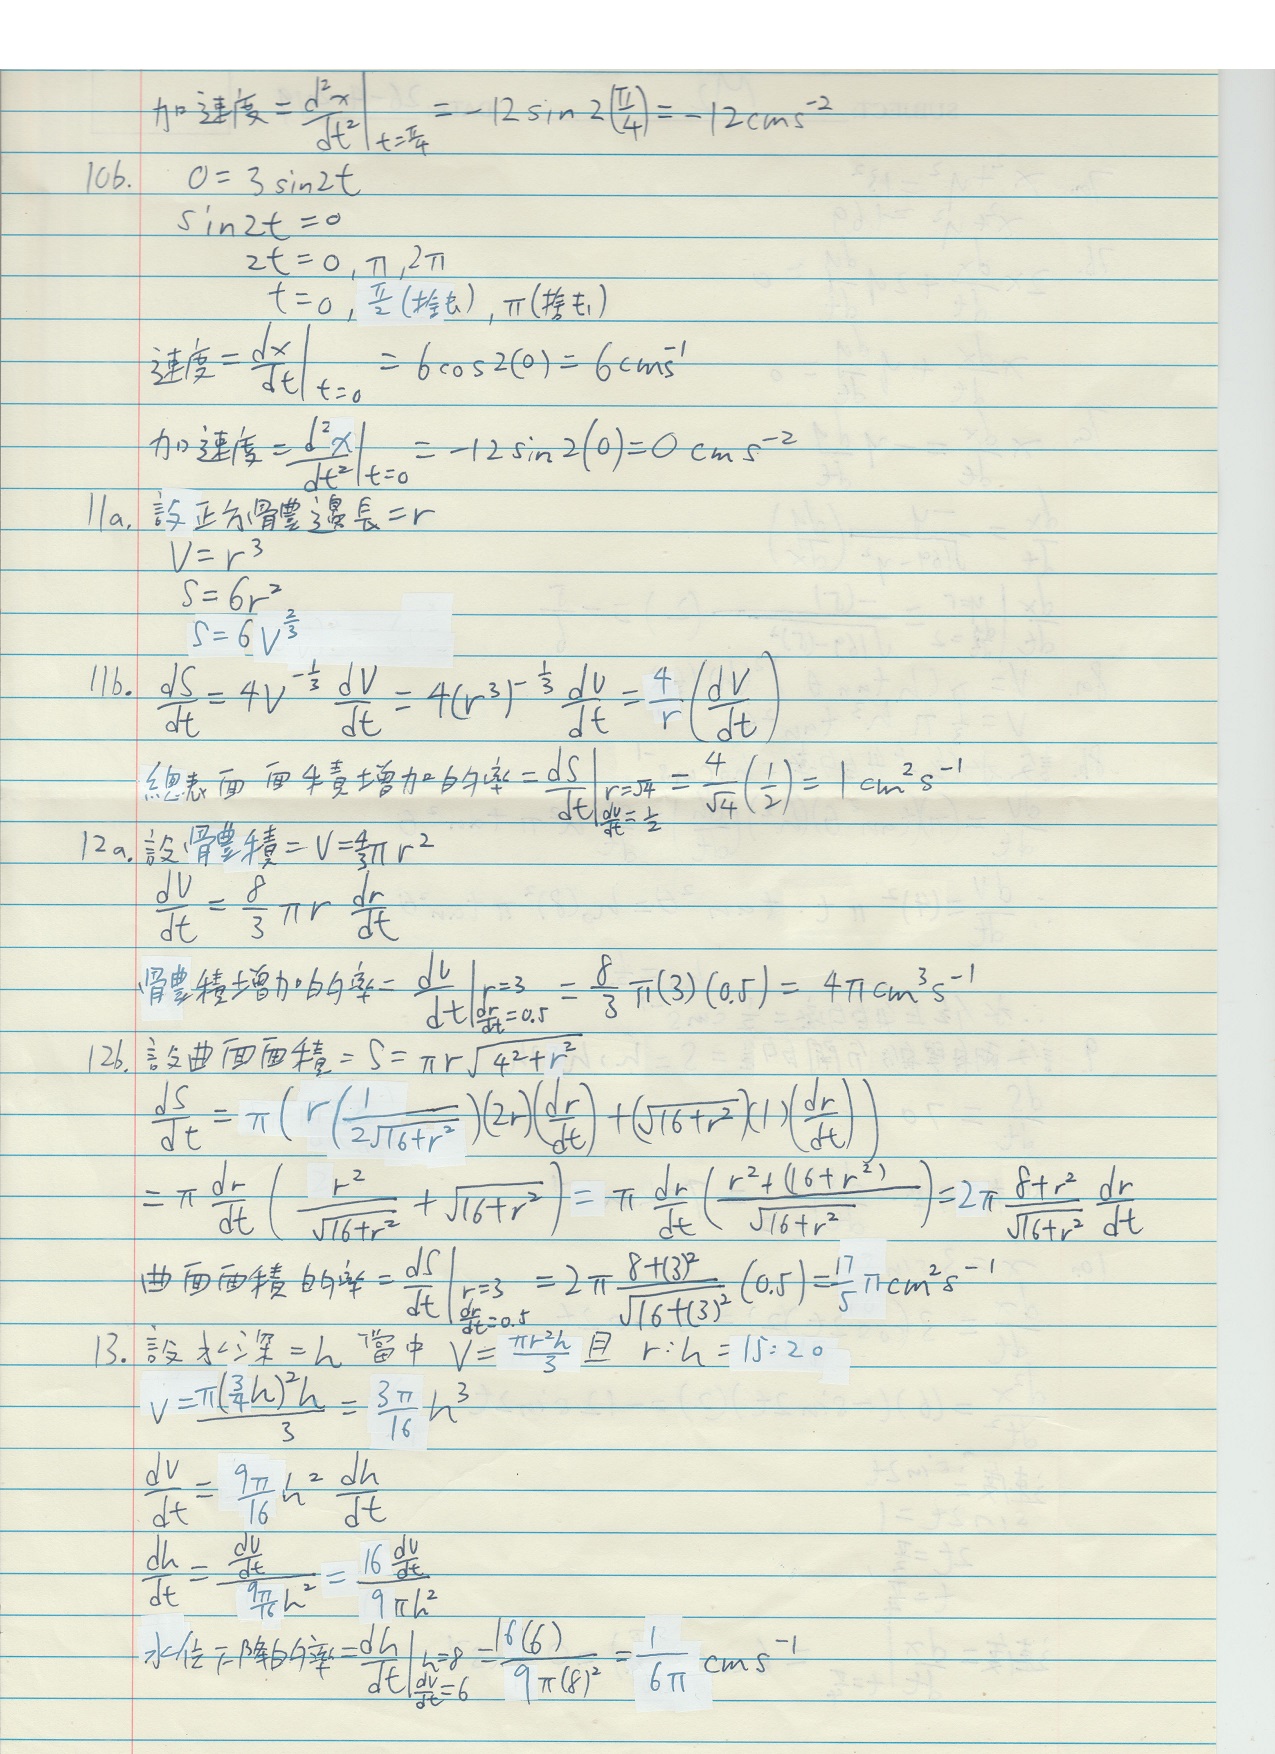 加速度 = d²x/dt² | t=π/4 = -12 sin 2(π/4) = -12 cms⁻²
10b. 0 = 3 sin2t
sin2t = 0
2t = 0, π, 2π
t = 0, π/2 (捨去), π (捨去)
速度 = dx/dt | t=0 = 6cos2(0) = 6cms⁻¹
加速度 = d²x/dt² | t=0 = -12 sin2(0) = 0 cms⁻²
11a. 設正方體邊長 = r
V = r³
S = 6r²
S = 6V^(2/3)
11b. dS/dt = 4V^(-1/3) dV/dt = 4(r³)^(-1/3) dV/dt = 4/r (dV/dt)
總表面面積增加的率 = dS/dt | r=√4, dV/dt=1/2 = 4/√4 (1/2) = 1 cm²s⁻¹
12a. 設體積 = V = 4/3 πr²
dV/dt = 8/3 πr dr/dt
體積增加的率 = dV/dt | r=3, dr/dt=0.5 = 8/3 π(3)(0.5) = 4π cm³s⁻¹
12b. 設曲面面積 = S = πr√(4²+r²)
dS/dt = π(r(1/(2√(16+r²)))(2r)(dr/dt) + (√(16+r²))(1)(dr/dt))
= π dr/dt (r²/√(16+r²) + √(16+r²)) = π dr/dt ((r²+(16+r²))/√(16+r²)) = 2π (8+r²)/√(16+r²) dr/dt
曲面面積的率 = dS/dt | r=3, dr/dt=0.5 = 2π (8+(3)²)/√(16+(3)²) (0.5) = 17/5 π cm²s⁻¹
13. 設水深 = h 當中 V = πr²h/3 且 r:h = 15:20
V = π(3/4 h)²h/3 = 3π/16 h³
dV/dt = 9π/16 h² dh/dt
dh/dt = (dV/dt)/(9π/16 h²) = (16 dV/dt)/(9πh²)
水位下降的率 = dh/dt | h=8, dV/dt=6 = 16(6)/(9π(8)²) = 1/(6π) cms⁻¹